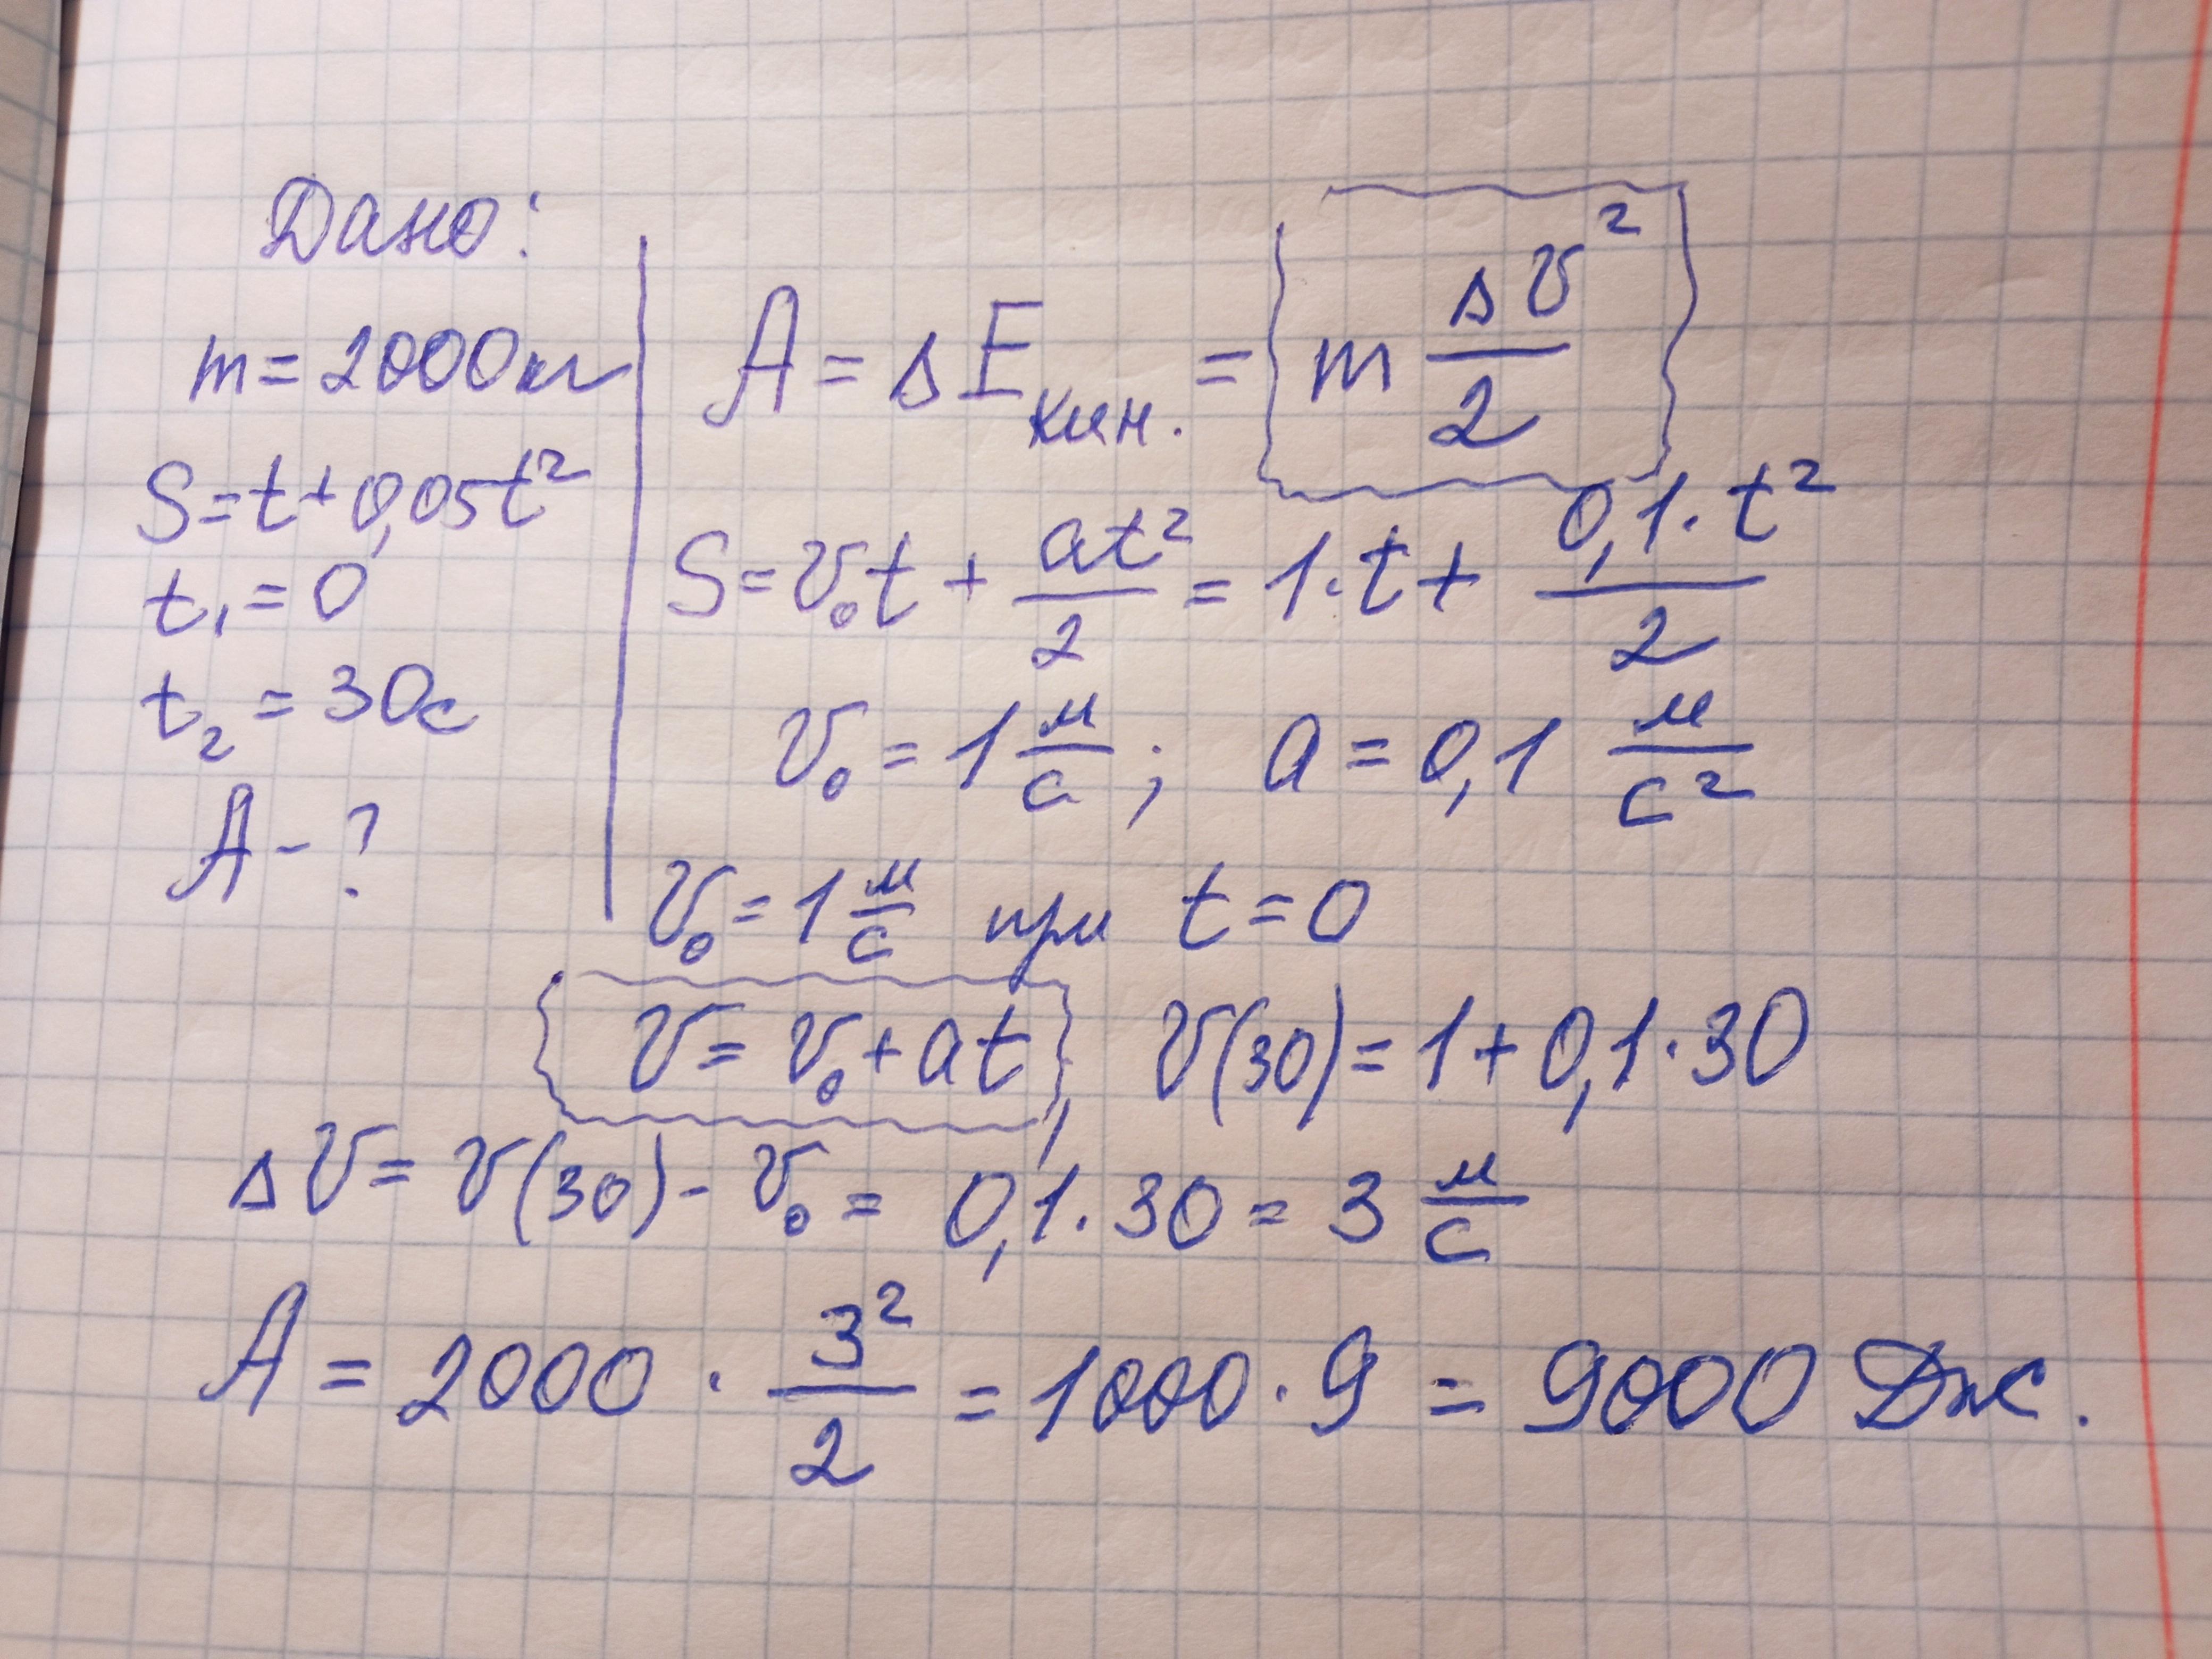 Дано:
m = 2000 кг
S = t + 0,05t²
t₁ = 0
t₂ = 30с
A - ?
A = ΔE кин. = m Δv²/2
S = v₀t + at²/2 = 1·t + 0,1·t²/2
v₀ = 1 м/с ; a = 0,1 м/с²
v₀ = 1 м/с при t = 0
v = v₀ + at, v(30) = 1 + 0,1·30
Δv = v(30) - v₀ = 0,1·30 = 3 м/с
A = 2000 · 3²/2 = 1000 · 9 = 9000 Дж.